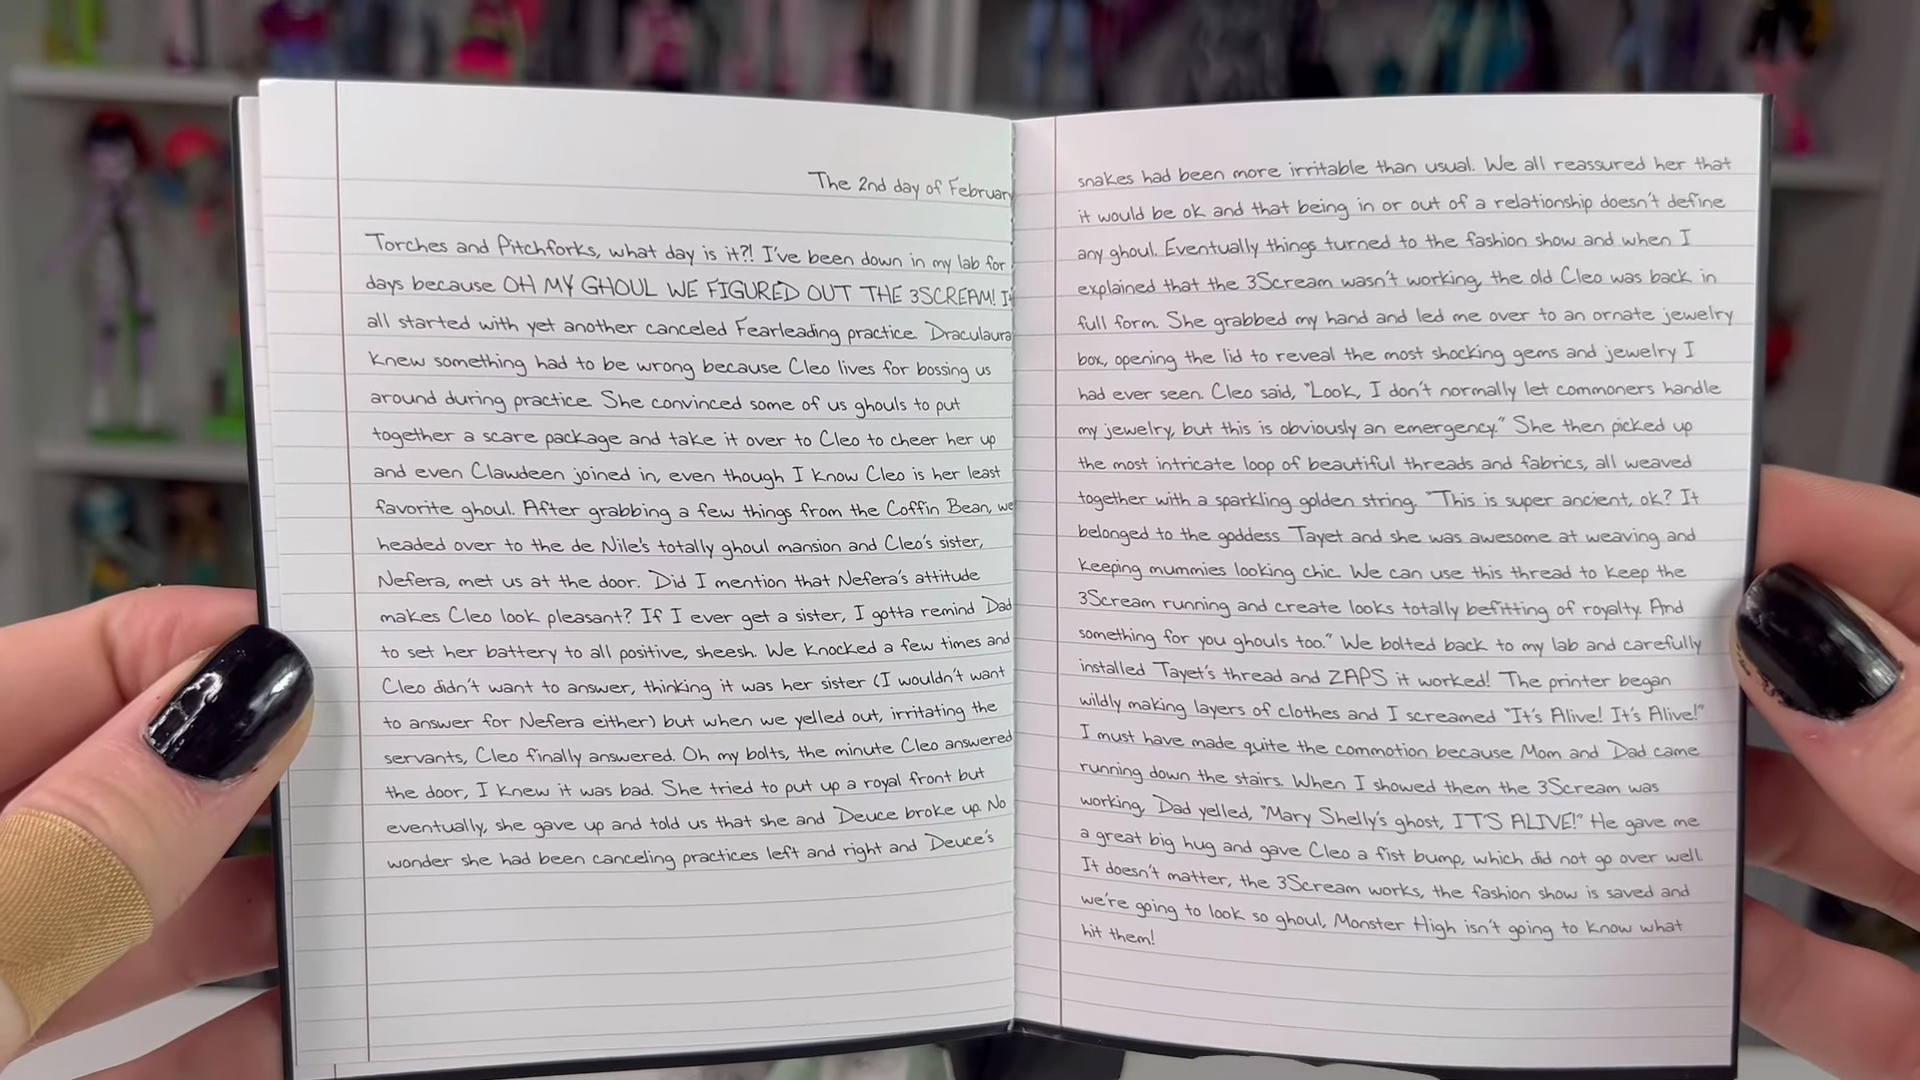 The 2nd day of February
Torches and Pitchforks, what day is it?! I've been down in my lab for
days because OH MY GHOUL WE FIGURED OUT THE 3SCREAM! It
all started with yet another canceled Fearleading practice. Draculaura
knew something had to be wrong because Cleo lives for bossing us
around during practice. She convinced some of us ghouls to put
together a scare package and take it over to Cleo to cheer her up
and even Clawdeen joined in, even though I know Cleo is her least
favorite ghoul. After grabbing a few things from the Coffin Bean, we
headed over to the de Nile's totally ghoul mansion and Cleo's sister,
Nefera, met us at the door. Did I mention that Nefera's attitude
makes Cleo look pleasant? If I ever get a sister, I gotta remind Dad
to set her battery to all positive, sheesh. We knocked a few times and
Cleo didn't want to answer, thinking it was her sister (I wouldn't want
to answer for Nefera either) but when we yelled out, irritating the
servants, Cleo finally answered. Oh my bolts, the minute Cleo answered
the door, I knew it was bad. She tried to put up a royal front but
eventually, she gave up and told us that she and Deuce broke up. No
wonder she had been canceling practices left and right and Deuce's
snakes had been more irritable than usual. We all reassured her that
it would be ok and that being in or out of a relationship doesn't define
any ghoul. Eventually things turned to the fashion show and when I
explained that the 3Scream wasn't working, the old Cleo was back in
full form. She grabbed my hand and led me over to an ornate jewelry
box, opening the lid to reveal the most shocking gems and jewelry I
had ever seen. Cleo said, "Look, I don't normally let commoners handle
my jewelry, but this is obviously an emergency." She then picked up
the most intricate loop of beautiful threads and fabrics, all weaved
together with a sparkling golden string. "This is super ancient, ok? It
belonged to the goddess Tayet and she was awesome at weaving and
keeping mummies looking chic. We can use this thread to keep the
3Scream running and create looks totally befitting of royalty. And
something for you ghouls too." We bolted back to my lab and carefully
installed Tayet's thread and ZAPS it worked! The printer began
wildly making layers of clothes and I screamed "It's Alive! It's Alive!"
I must have made quite the commotion because Mom and Dad came
running down the stairs. When I showed them the 3Scream was
working, Dad yelled, "Mary Shelly's ghost, IT'S ALIVE!" He gave me
a great big hug and gave Cleo a fist bump, which did not go over well.
It doesn't matter, the 3Scream works, the fashion show is saved and
we're going to look so ghoul, Monster High isn't going to know what
hit them!